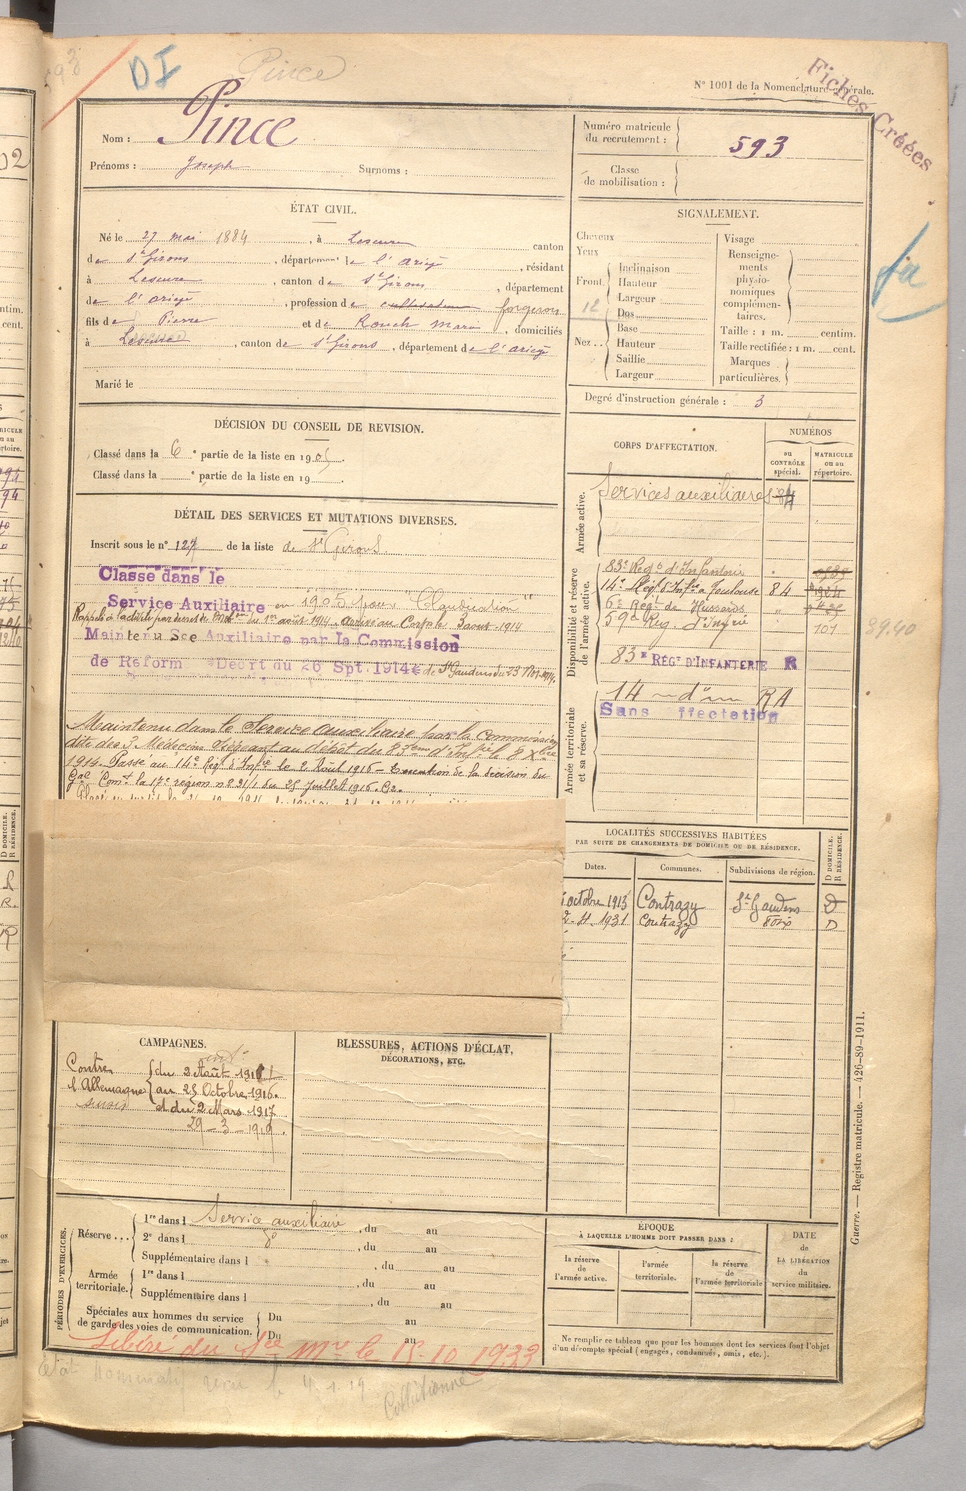 593
DI
Pince
N° 1001 de la Nomenclature générale.
Fiches Créées
Nom : Pince
Prénoms : Joseph Surnoms :
Numéro matricule du recrutement : 593
Classe de mobilisation :
ÉTAT CIVIL.
Né le 27 mai 1884, à Lescure canton
de St Girons, département de l'ariège, résidant
à Lescure, canton de St Girons, département
de l'ariège, profession de cultivateur forgeron
fils de Pierre et de Rouch Marie, domiciliés
à Lescure, canton de St Girons, département de l'ariège
Marié le
SIGNALEMENT.
Cheveux
Yeux
Front.
Inclinaison
Hauteur
Largeur
12
Nez...
Dos
Base
Hauteur
Saillie
Largeur
Visage
Renseignements physionomiques complémentaires.
Taille : 1 m. centim.
Taille rectifiée : 1 m. cent.
Marques particulières.
Degré d'instruction générale : 3
DÉCISION DU CONSEIL DE REVISION.
Classé dans la 6e partie de la liste en 1905.
Classé dans la e partie de la liste en 19
DÉTAIL DES SERVICES ET MUTATIONS DIVERSES.
Inscrit sous le n° 127 de la liste de St Girons
Classé dans le
Service Auxiliaire en 1905 pour "Claudication"
Rappelé à l'activité par décret de Mobon du 1er août 1914 - Arrivé au Corps le 3 août 1914
Maintenu Sce Auxiliaire par la Commission
de Réform Décrt du 26 Spt. 1914 de St Gaudens du 23 Nov. 1914.
Maintenu dans le Service Auxiliaire par la Commission
dite des 3 Médecins siégeant au dépôt du 83ème d'Infie le 8 Xbre
1914. Passé au 14e Régt d'Infie le 2 Août 1916 - Exécution de la décision du
Gal Comt la 17e région n° 21/1 du 25 Juillet 1916. B2.
CORPS D'AFFECTATION.
NUMÉROS
au CONTRÔLE spécial.
MATRICULE ou au répertoire.
Armée active.
Services auxiliaires 84
Disponibilité et réserve de l'armée active.
83e Régt d'Infanterie
14e Régt d'Infie à Toulouse 84
6e Régt de Hussards "
59e Rég. d'Infie 101
39.40
83e RÉGt D'INFANTERIE R
Armée territoriale et sa réserve.
14 - d° - RA
Sans ffectation
LOCALITÉS SUCCESSIVES HABITÉES
PAR SUITE DE CHANGEMENTS DE DOMICILE OU DE RÉSIDENCE.
Dates. Communes. Subdivisions de région. D DOMICILE. R RÉSIDENCE.
octobre 1913 Contrazy St Gaudens D
1931 Contrazy Foix D
CAMPAGNES.
Contre l'Allemagne
du 2 Août 191
au 25 Octobre 1916.
et du 2 Mars 1917
29 - 3 - 1919.
BLESSURES, ACTIONS D'ÉCLAT,
DÉCORATIONS, ETC.
PÉRIODES D'EXERCICES.
Réserve...
1re dans l Service auxiliaire, du au
2e dans l d°, du au
Supplémentaire dans l, du au
Armée territoriale.
1re dans l, du au
Supplémentaire dans l, du au
Spéciales aux hommes du service de garde des voies de communication.
Du au
Du au
ÉPOQUE
À LAQUELLE L'HOMME DOIT PASSER DANS :
la réserve de l'armée active.
l'armée territoriale.
la réserve de l'armée territoriale
DATE de LA LIBÉRATION du service militaire.
Ne remplir ce tableau que pour les hommes dont les services font l'objet
d'un décompte spécial (engagés, condamnés, omis, etc.).
Libéré du Sce Mre le 15.10.1933
état nominatif reçu le 4.1.19
Guerre. — Registre matricule. — 426-89-1911.